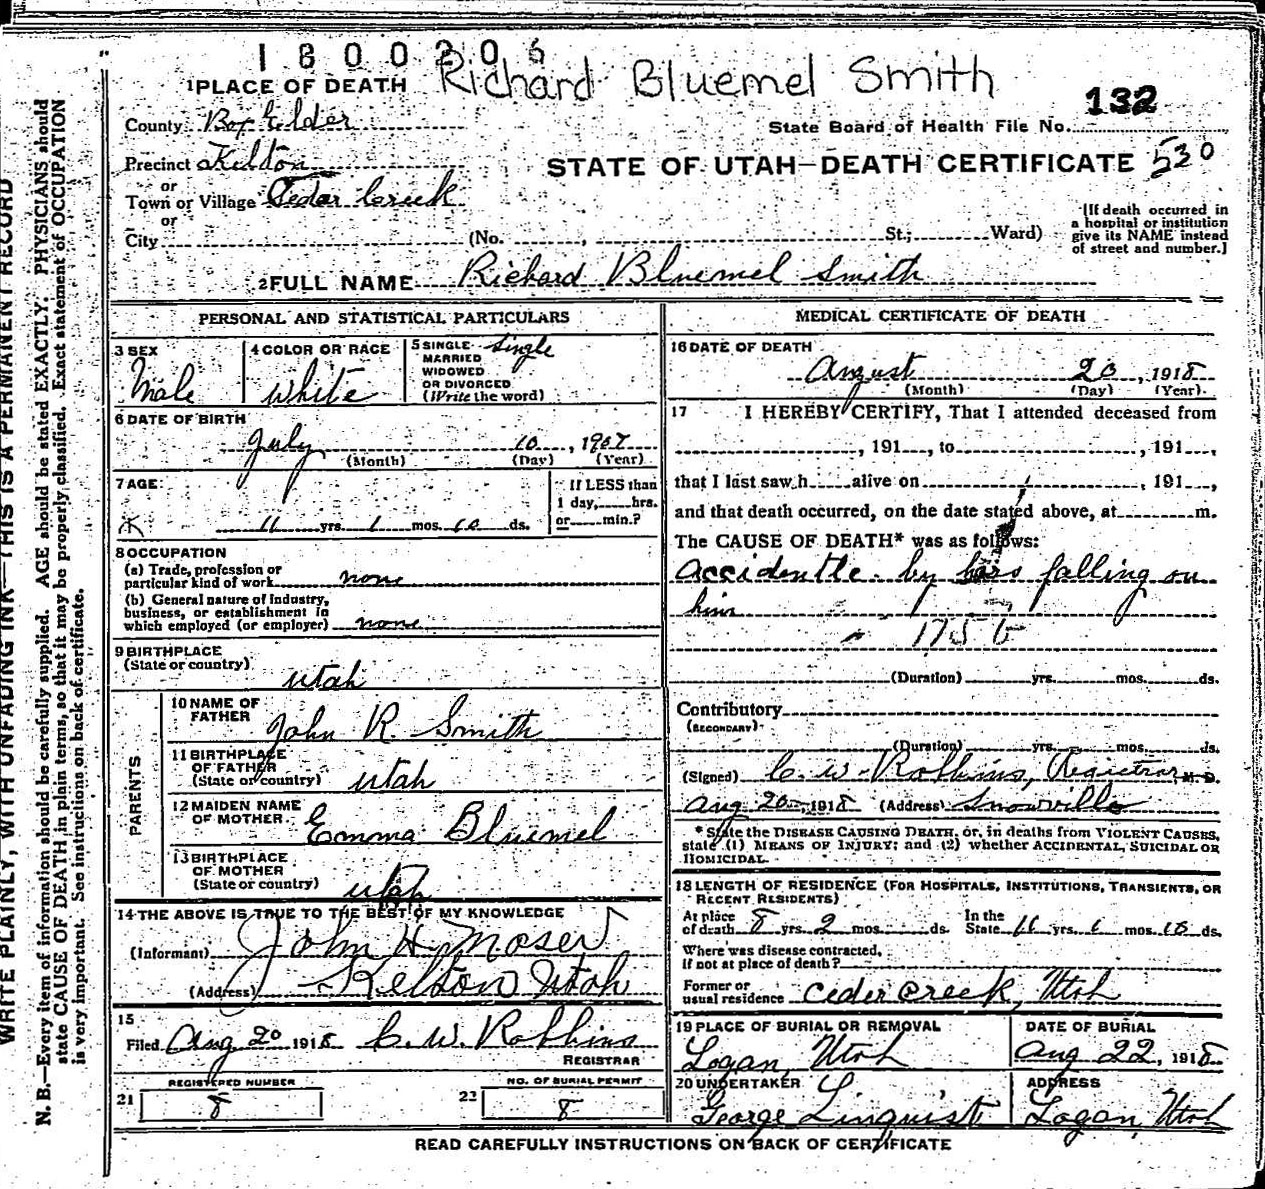 1800206
1 PLACE OF DEATH Richard Bluemel Smith
132
County Box Elder
State Board of Health File No.
Precinct Kelton
STATE OF UTAH—DEATH CERTIFICATE 530
or
Town or Village Cedar Creek
or
City (No. , St.; Ward)
[If death occurred in
a hospital or institution
give its NAME instead
of street and number.]
2 FULL NAME Richard Bluemel Smith
PERSONAL AND STATISTICAL PARTICULARS
3 SEX
Male
4 COLOR OR RACE
White
5 SINGLE single
MARRIED
WIDOWED
OR DIVORCED
(Write the word)
6 DATE OF BIRTH
July 10, 1907
(Month) (Day) (Year)
7 AGE
11 yrs. 1 mos. 10 ds.
If LESS than
1 day, hrs.
or min.?
8 OCCUPATION
(a) Trade, profession or
particular kind of work none
(b) General nature of industry,
business, or establishment in
which employed (or employer) none
9 BIRTHPLACE
(State or country)
Utah
PARENTS
10 NAME OF
FATHER
John R. Smith
11 BIRTHPLACE
OF FATHER
(State or country) Utah
12 MAIDEN NAME
OF MOTHER Emma Bluemel
13 BIRTHPLACE
OF MOTHER
(State or country) Utah
14 THE ABOVE IS TRUE TO THE BEST OF MY KNOWLEDGE
(Informant) John H Moser
(Address) Kelton Utah
15
Filed Aug 20 1918 C. W. Robbins
REGISTRAR
REGISTERED NUMBER
21 8
NO. OF BURIAL PERMIT
22 8
MEDICAL CERTIFICATE OF DEATH
16 DATE OF DEATH
August 20, 1918
(Month) (Day) (Year)
17 I HEREBY CERTIFY, That I attended deceased from
, 191 , to , 191 ,
that I last saw h alive on , 191 ,
and that death occurred, on the date stated above, at m.
The CAUSE OF DEATH* was as follows:
accidentle by falling on
him
175
(Duration) yrs. mos. ds.
Contributory
(SECONDARY)
(Duration) yrs. mos. ds.
(Signed) C. W. Robbins, Registrar M. D.
Aug 20, 1918 (Address) Snowville
* State the DISEASE CAUSING DEATH, or, in deaths from VIOLENT CAUSES,
state (1) MEANS OF INJURY; and (2) whether ACCIDENTAL, SUICIDAL OR
HOMICIDAL.
18 LENGTH OF RESIDENCE (FOR HOSPITALS, INSTITUTIONS, TRANSIENTS, OR
RECENT RESIDENTS)
At place
of death 8 yrs. 2 mos. ds.
In the
State 11 yrs. 1 mos. 10 ds.
Where was disease contracted,
if not at place of death?
Former or
usual residence Ceder Creek, Utah
19 PLACE OF BURIAL OR REMOVAL
Logan, Utah
DATE OF BURIAL
Aug 22, 1918
20 UNDERTAKER
George Linquist
ADDRESS
Logan, Utah
READ CAREFULLY INSTRUCTIONS ON BACK OF CERTIFICATE
WRITE PLAINLY, WITH UNFADING INK—THIS IS A PERMANENT RECORD
N. B.—Every item of information should be carefully supplied. AGE should be stated EXACTLY. PHYSICIANS should
state CAUSE OF DEATH in plain terms, so that it may be properly classified. Exact statement of OCCUPATION
is very important. See instructions on back of certificate.